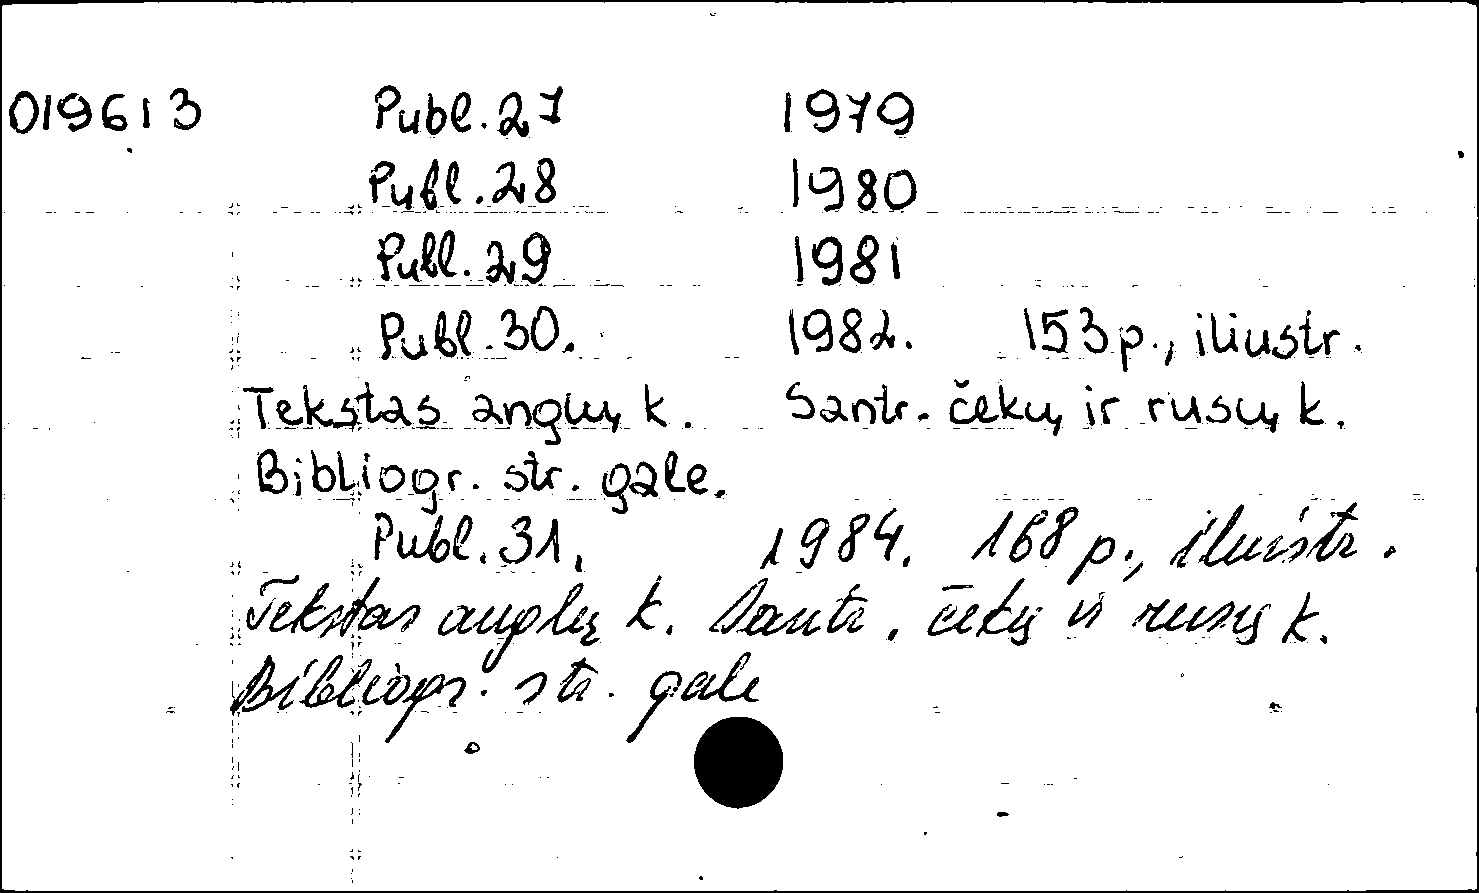 019613 Publ. 27 1979
Publ. 28 1980
Publ. 29 1981
Publ. 30. 1982. 153 p., iliustr.
Tekstas anglų k. Santr. čekų ir rusų k.
Bibliogr. str. gale.
Publ. 31. 1984. 168 p., iliustr.
Tekstas anglų k. Santr. čekų ir rusų k.
Bibliogr. str. gale